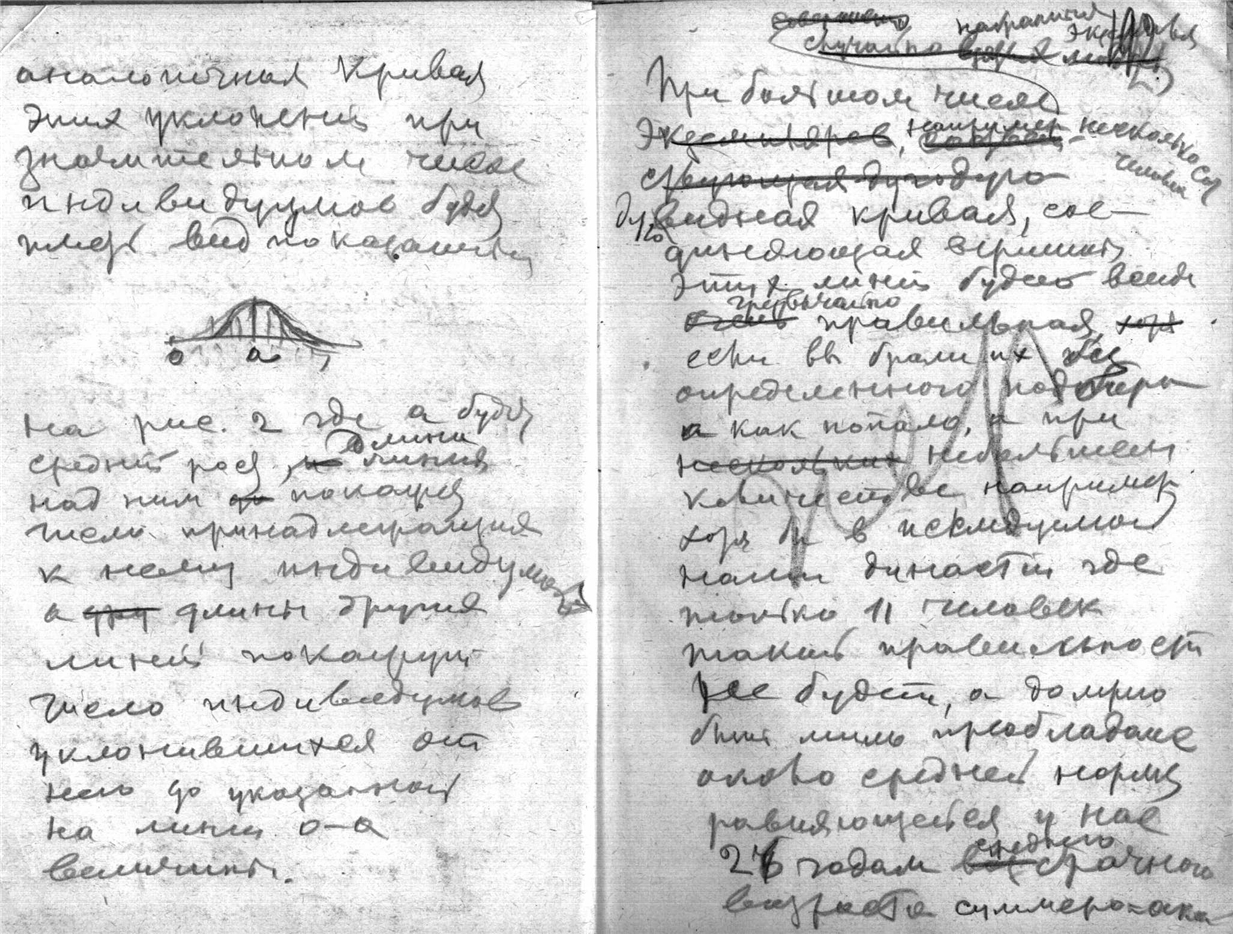 аналогичная кривая
этих уклонений при
значительном числе
индивидуумов будет
иметь вид показанный
о а
на рис. 2 где а будет
средний рост, длина линии
над ним покажет
число принадлежащих
к нему индивидумов
а длины других
линий покажут
число индивидумов
уклонившихся от
него до указанной
на линии о-а
величины.
совершенно
случайно
При большом числе
экземпляров, например несколько сот
человек
дугообразная
видная кривая, сое-
диняющая вершины
этих линий будет всегда
чрезвычайно
очень правильная, хотя
если вы брали их без
определенного подбора
а как попало, а при
нескольких небольшем
количестве например
хотя бы в исследуемой
нами династии где
только 11 человек
такой правильности
не будет, а должно
быть лишь преобладание
около средней нормы
равняющейся у нас
годам среднего брачного
возраста